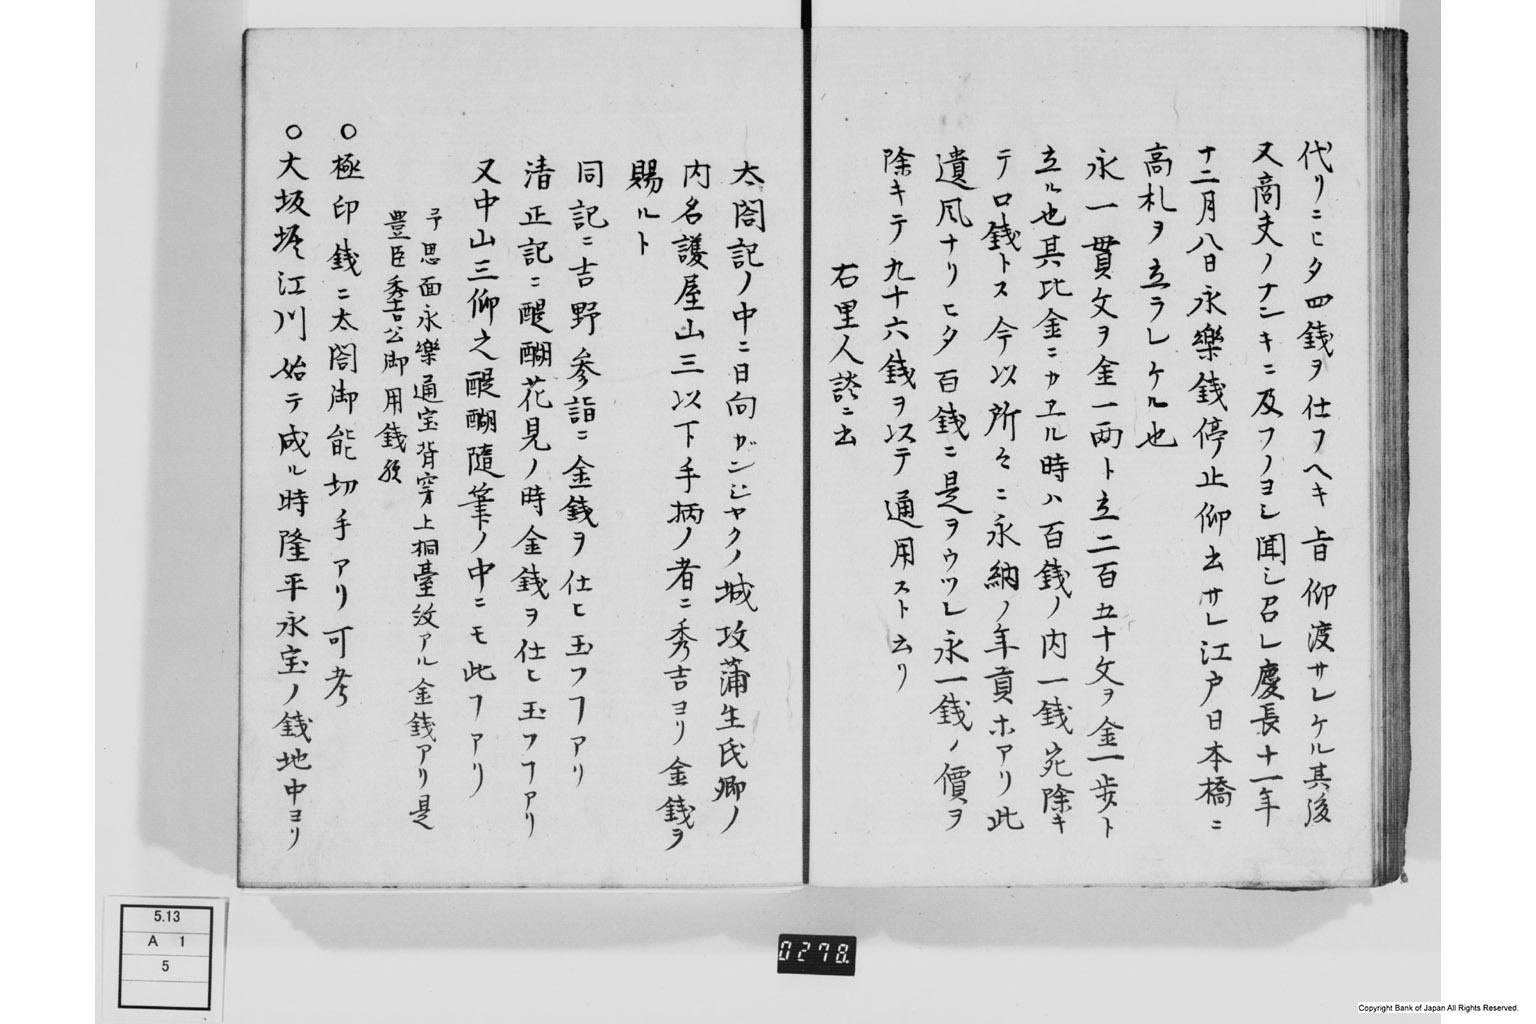 代リニヒタ四銭ヲ仕フヘキ旨仰渡サレケル其後
又商夫ノナンキニ及フノヨシ聞シ召レ慶長十一年
十二月八日永樂銭停止仰出サレ江戸日本橋ニ
高札ヲ立ラレケル也
永一貫文ヲ金一両ト立二百五十文ヲ金一歩ト
立ル也其比金ニカヱル時ハ百銭ノ内一銭宛除キ
テ口銭トス今以所々ニ永納ノ年貢ホアリ此
遺風ナリヒタ百銭ニ是ヲウツシ永一銭ノ價ヲ
除キテ九十六銭ヲ以テ通用スト云リ
右里人談ニ出
太閤記ノ中ニ日向ガンジヤクノ城攻蒲生氏郷ノ
内名護屋山三以下手柄ノ者ニ秀吉ヨリ金銭ヲ
賜ルト
同記ニ吉野参詣ニ金銭ヲ仕ヒ玉フヿアリ
清正記ニ醍醐花見ノ時金銭ヲ仕ヒ玉フヿアリ
又中山三仰之醍醐隨筆ノ中ニモ此ヿアリ
予思面永樂通宝背穿上桐臺紋アル金銭アリ是
豊臣秀吉公御用銭
○極印銭ニ太閤御能切手アリ可考
○大坂堀江川始テ成ル時隆平永宝ノ銭地中ヨリ
5.13
A 1
5
0278.
Copyright Bank of Japan All Rights Reserved.